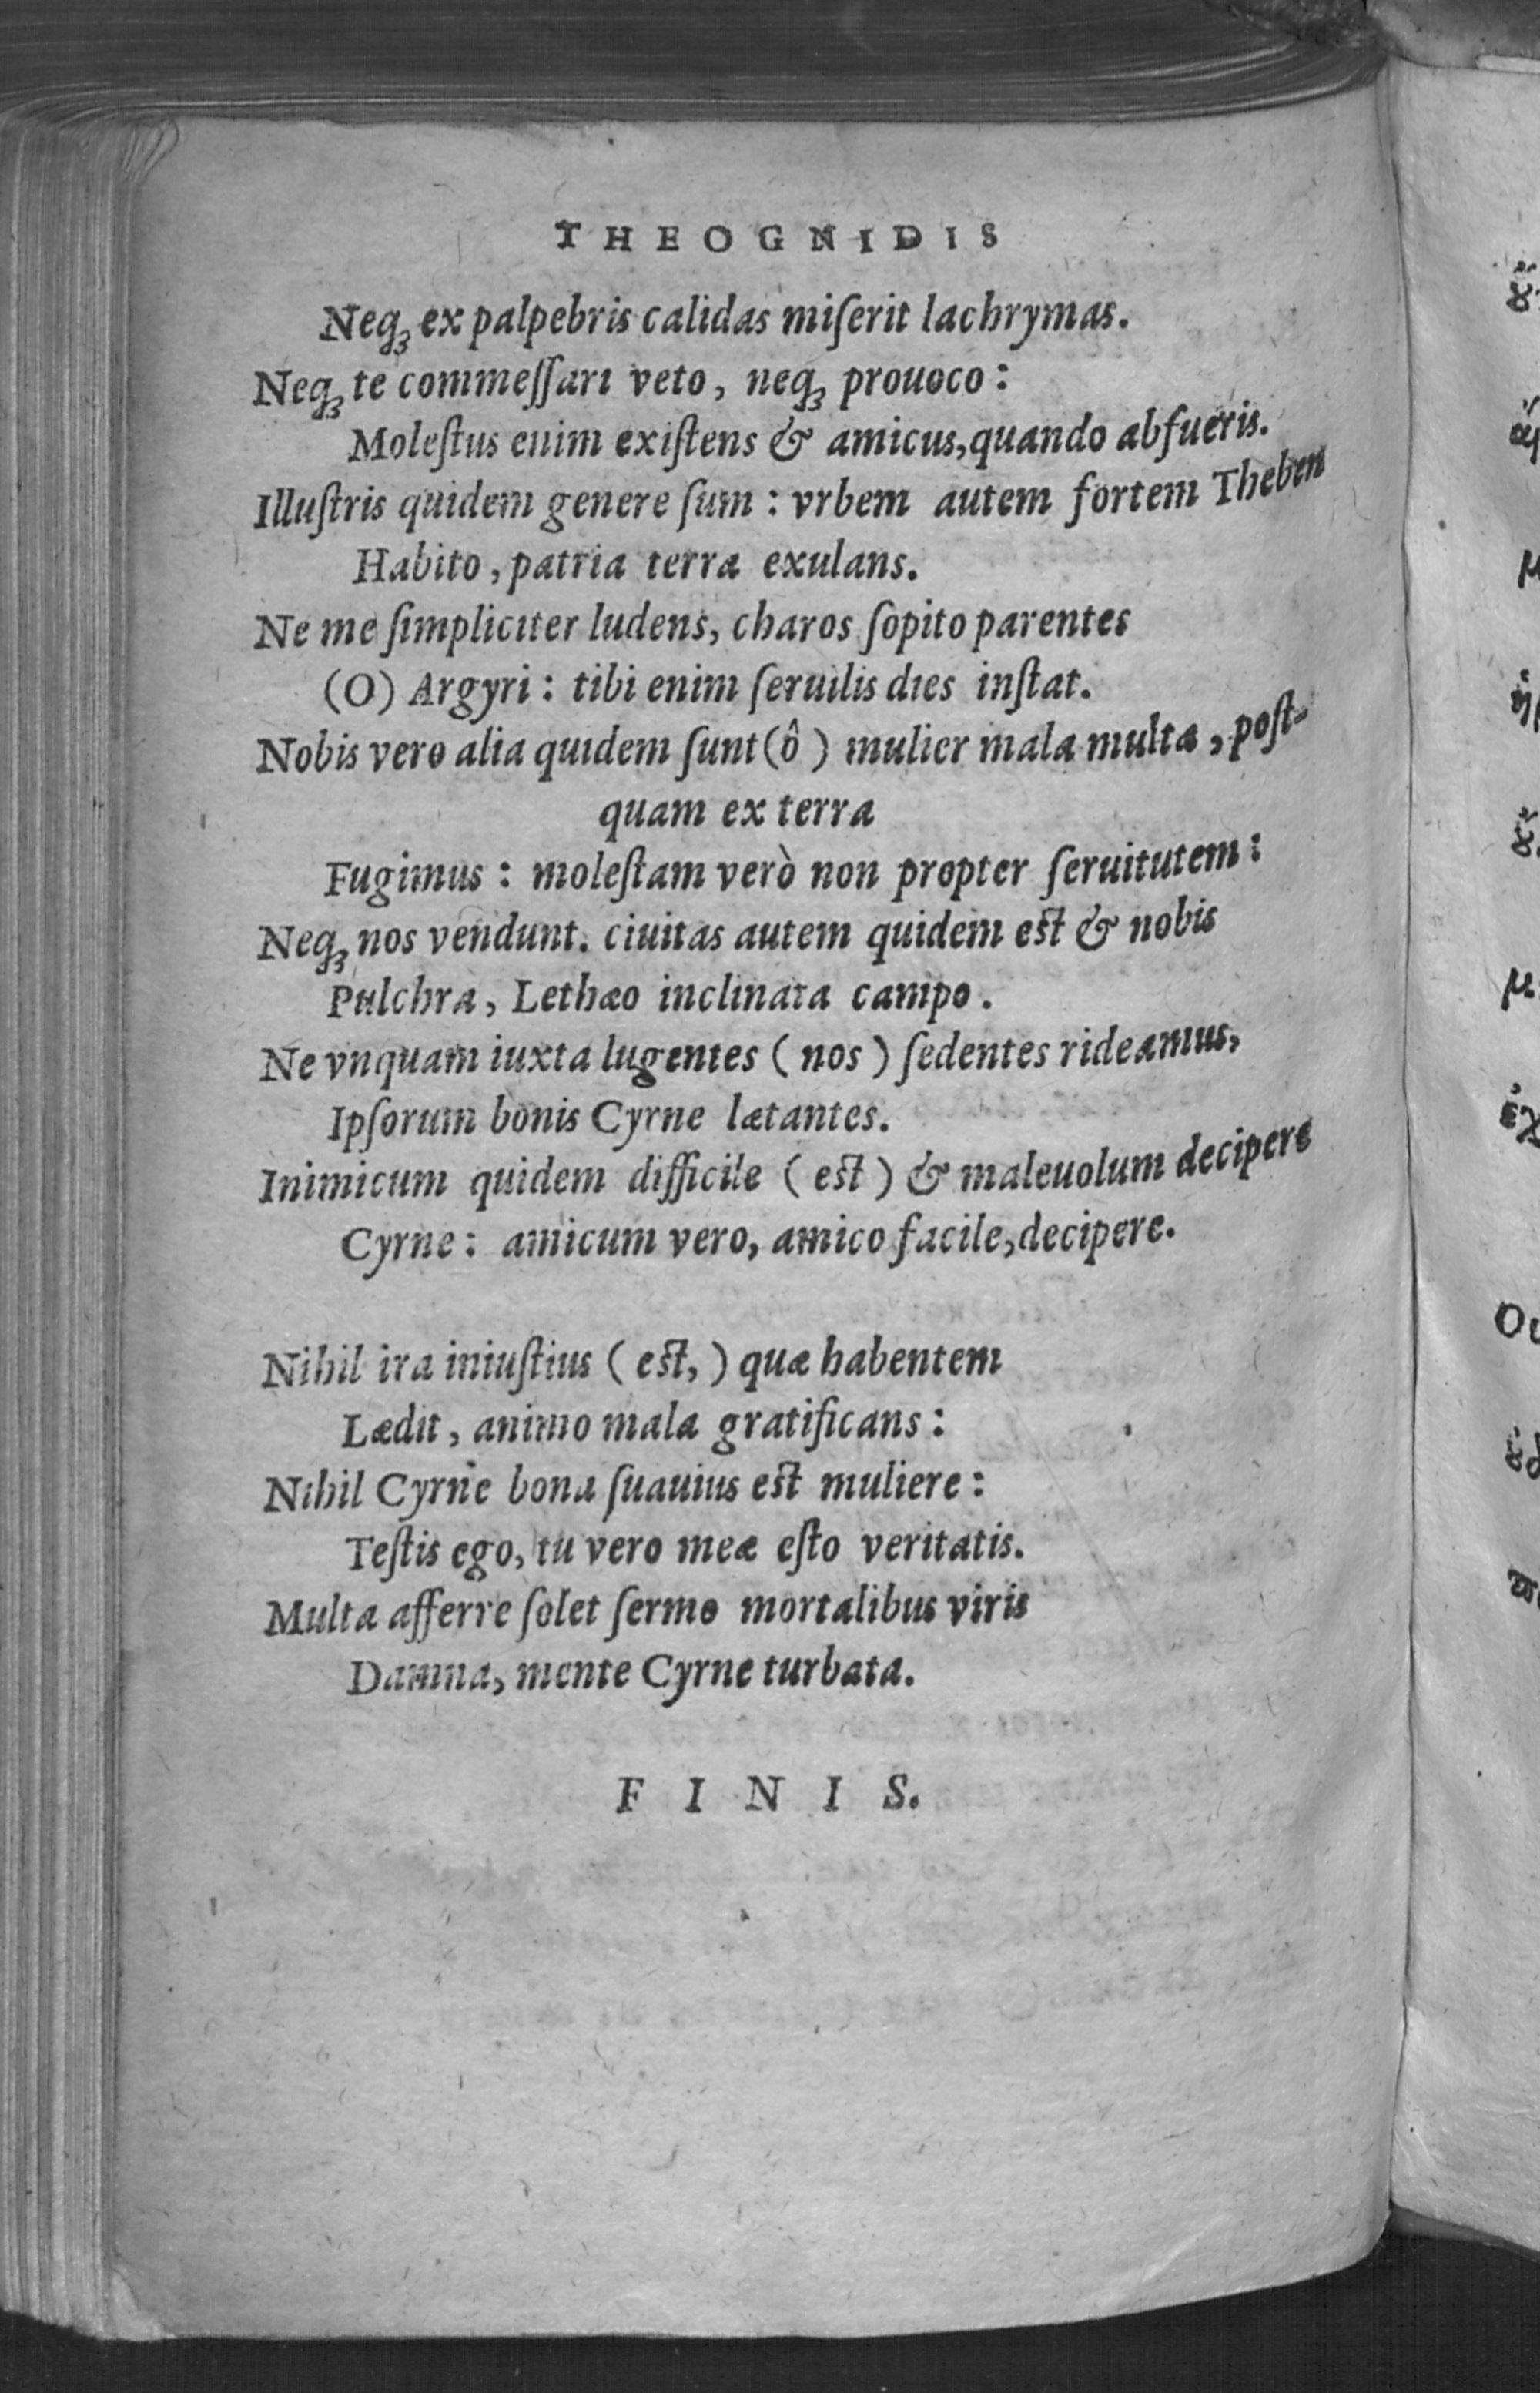 THEOGNIDIS
Neqꝫ ex palpebris calidas miſerit lachrymas.
Neqꝫ te commeſſari veto, neqꝫ prouoco:
Moleſtus enim exiſtens & amicus, quando abfueris.
Illuſtris quidem genere ſum: vrbem autem fortem Theben
Habito, patria terra exulans.
Ne me ſimpliciter ludens, charos ſopito parentes
(O) Argyri: tibi enim ſeruilis dies inſtat.
Nobis vero alia quidem ſunt (ô) mulier mala multa, poſt-
quam ex terra
Fugimus: moleſtam verò non propter ſeruitutem:
Neqꝫ nos vendunt. ciuitas autem quidem eſt & nobis
Pulchra, Lethæo inclinata campo.
Ne vnquam iuxta lugentes (nos) ſedentes rideamus,
Ipſorum bonis Cyrne lætantes.
Inimicum quidem difficile (eſt) & maleuolum decipere
Cyrne: amicum vero, amico facile, decipere.
Nihil ira iniuſtius (eſt,) quæ habentem
Lædit, animo mala gratificans:
Nihil Cyrne bona ſuauius eſt muliere:
Teſtis ego, tu vero meæ eſto veritatis.
Multa afferre ſolet ſermo mortalibus viris
Damna, mente Cyrne turbata.
FINIS.